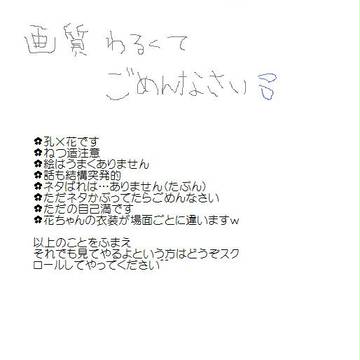 画質わるくて
ごめんなさい
✿孔×花です
✿ねつ造注意
✿絵はうまくありません
✿話も結構突発的
✿ネタばれは…ありません(たぶん)
✿ただネタかぶってたらごめんなさい
✿ただの自己満です
✿花ちゃんの衣装が場面ごとに違いますw
以上のことをふまえ
それでも見てやるよという方はどうぞスク
ロールしてやってください^^